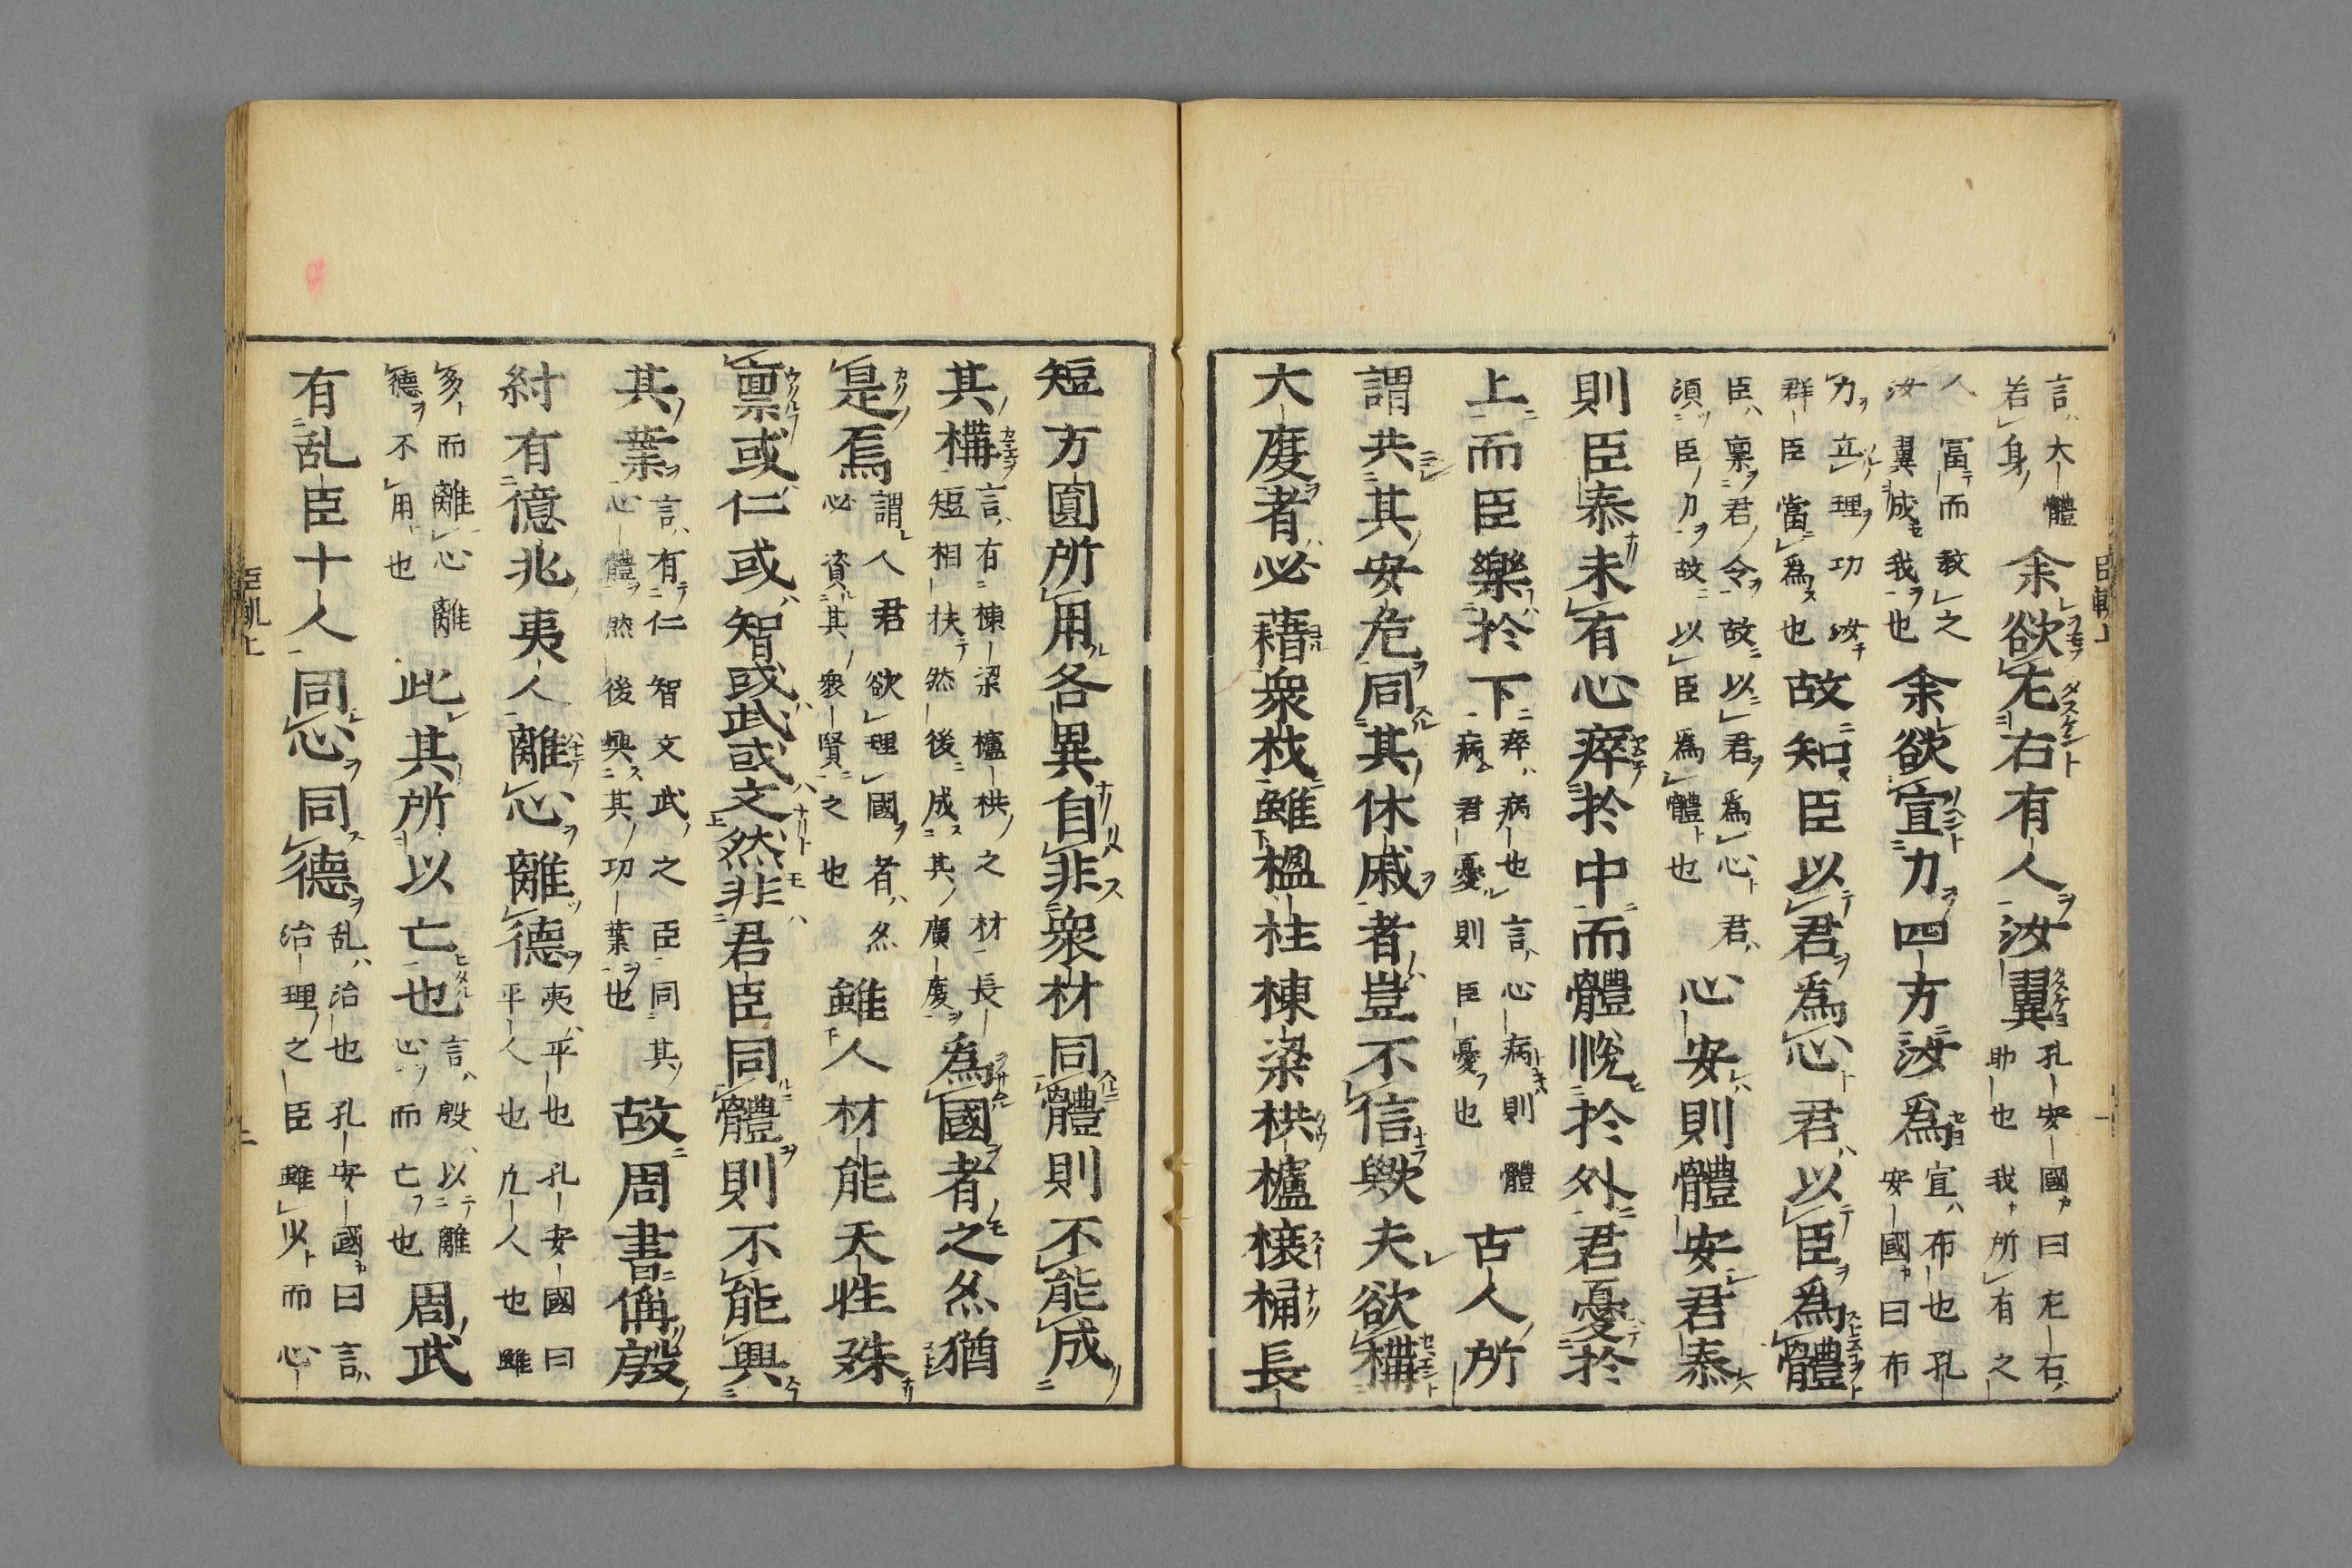 言大體若身余欲左右有人汝翼孔安國曰左右助也我所有之
人富而教之汝翼成我也余欲宣力四方汝爲宣布也孔安國曰布
力立理功汝群臣當爲也故知臣以君爲心君以臣爲體
臣稟君令故以君爲心君須臣力故以臣爲體也心安則體安君泰
則臣泰未有心瘁於中而體悅於外君憂於
上而臣樂於下瘁病也言心病則體病君憂則臣憂也古人所
謂共其安危同其休戚者豈不信歟夫欲構
大廈者必藉衆材雖楹柱棟梁栱櫨榱桷長
短方圓所用各異自非衆材同體則不能成
其構言有棟梁櫨栱之材長短相扶然後成其廣廈爲國者之然猶
是焉謂人君欲理國者然必資其衆賢之也雖人材能天性殊
稟或仁或智或武或文然非君臣同體則不能興
其業言有仁智文武之臣同其心體然後興其功業也故周書偁殷
紂有億兆夷人離心離德夷平也孔安國曰平人也凢人也雖
多而離心離德不用也此其所以亡也言殷以離心而亡也周武
有乱臣十人同心同德乱治也孔安國曰言治理之臣雖少而心
臣軌上
二